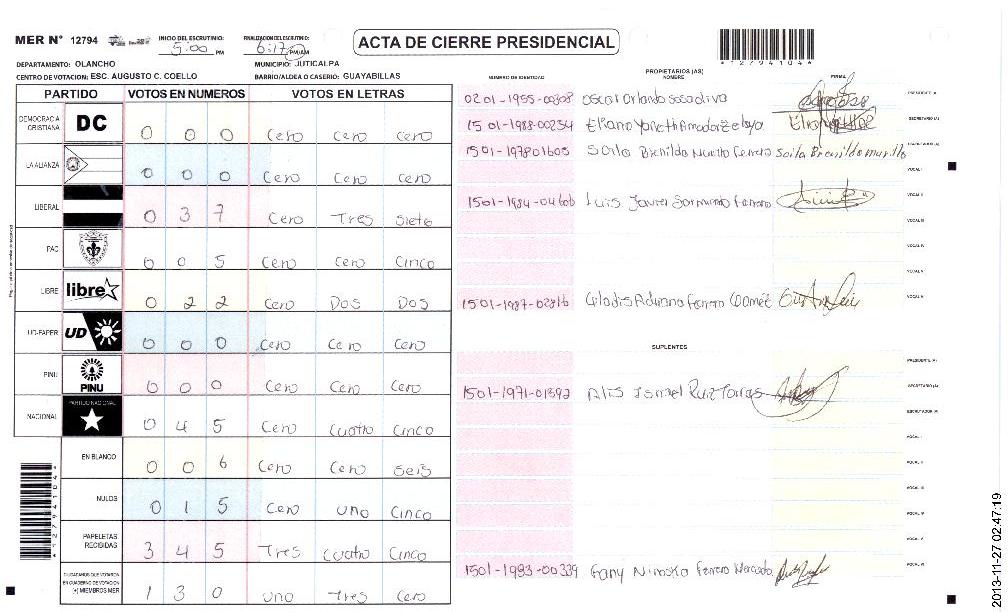 MER N° 12794
INICIO DEL ESCRUTINIO: 5:00 PM
FINALIZACION DEL ESCRUTINIO: 6:17 PM/AM
ACTA DE CIERRE PRESIDENCIAL
*12794104*
DEPARTAMENTO: OLANCHO
MUNICIPIO: JUTICALPA
CENTRO DE VOTACION: ESC. AUGUSTO C. COELLO
BARRIO/ALDEA O CASERIO: GUAYABILLAS
PARTIDO VOTOS EN NUMEROS VOTOS EN LETRAS
DEMOCRACIA CRISTIANA DC 0 0 0 Cero Cero Cero
LA ALIANZA 0 0 0 Cero Cero Cero
LIBERAL 0 3 7 Cero Tres Siete
PAC 0 0 5 Cero Cero Cinco
LIBRE libre 0 2 2 Cero Dos Dos
UD-FAPER UD 0 0 0 Cero Cero Cero
PINU PINU 0 0 0 Cero Cero Cero
NACIONAL PARTIDO NACIONAL 0 4 5 Cero Cuatro Cinco
EN BLANCO 0 0 6 Cero Cero Seis
NULOS 0 1 5 Cero uno Cinco
PAPELETAS RECIBIDAS 3 4 5 Tres Cuatro Cinco
CIUDADANOS QUE VOTARON EN CUADERNO DE VOTACION (+) MIEMBROS MER 1 3 0 uno Tres Cero
*12794104*
PROPIETARIOS (AS)
NUMERO DE IDENTIDAD NOMBRE FIRMA
0201-1955-00808 Oscar Orlando PRESIDENTE (A)
1501-1988-00234 SECRETARIO (A)
1501-197801605 ESCRUTADOR (A)
VOCAL I
1501-1984-04606 Luis Javier Sarmiento Ferrera VOCAL II
VOCAL III
VOCAL IV
VOCAL V
1501-1987-02816 VOCAL VI
SUPLENTES
PRESIDENTE (A)
1501-1971-01892 Alis Ismael Ruiz Torras SECRETARIO (A)
ESCRUTADOR (A)
VOCAL I
VOCAL II
VOCAL III
VOCAL IV
VOCAL V
1501-1983-00339 VOCAL VI
2013-11-27 02:47:19